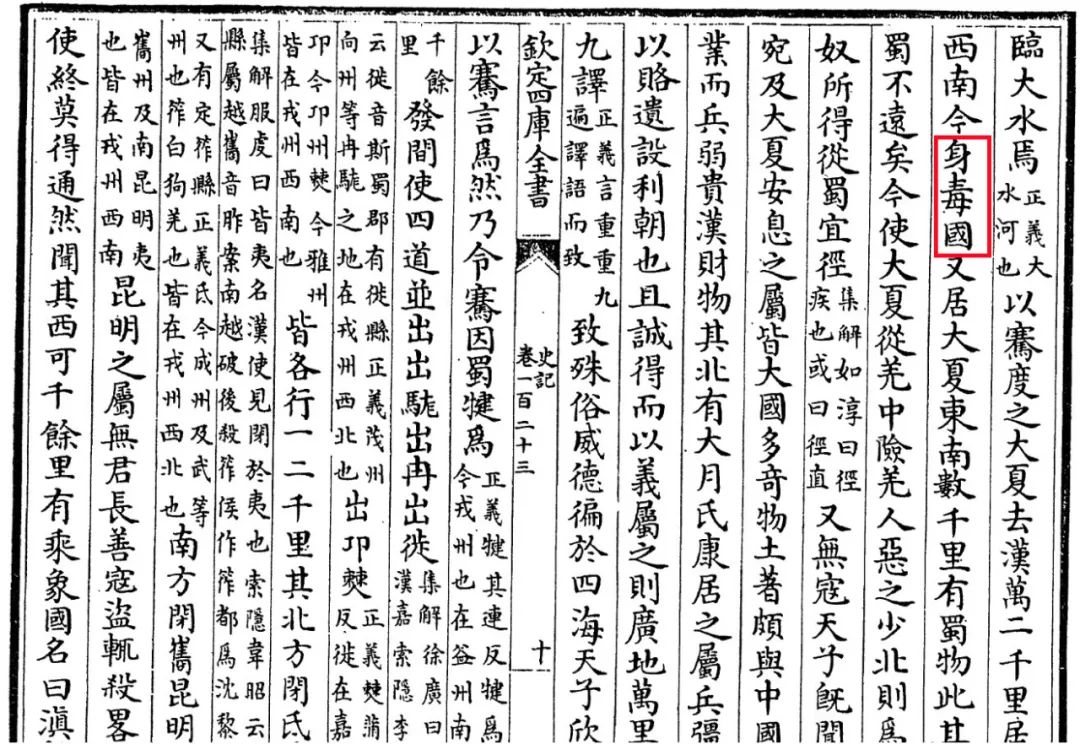 臨大水焉正義大水河也以騫度之大夏去漢萬二千里居
西南今身毒國又居大夏東南數千里有蜀物此其
蜀不遠矣今使大夏從羌中險羌人惡之少北則爲
奴所得從蜀宜徑集解如淳曰徑疾也或曰徑直又無寇天子既聞
宛及大夏安息之屬皆大國多奇物土著頗與中國
業而兵弱貴漢財物其北有大月氏康居之屬兵彊
以賂遺設利朝也且誠得而以義屬之則廣地萬里
九譯正義言重重九遍譯語而致致殊俗威德徧於四海天子欣
欽定四庫全書 史記卷一百二十三 十
以騫言爲然乃令騫因蜀犍爲正義犍其連反犍爲今戎州也在益州南
千餘里發間使四道並出出駹出冉出徙集解徐廣曰漢嘉索隱李
云徙音斯蜀郡有徙縣正義茂州向州等冉駹之地在戎州西北也出卭僰正義僰蒲反徙在嘉
卭今卭州僰今雅州皆在戎州西南也皆各行一二千里其北方閉氐
集解服虔曰皆夷名漢使見閉於夷也索隱韋昭云縣屬越巂音昨案南越破後殺筰侯作筰都爲沈黎
又有定筰縣正義氐今成州及武等州也筰白狗羌也皆在戎州西北也南方閉巂昆明
巂州及南昆明夷也皆在戎州西南昆明之屬無君長善寇盜輒殺畧
使終莫得通然聞其西可千餘里有乘象國名曰滇